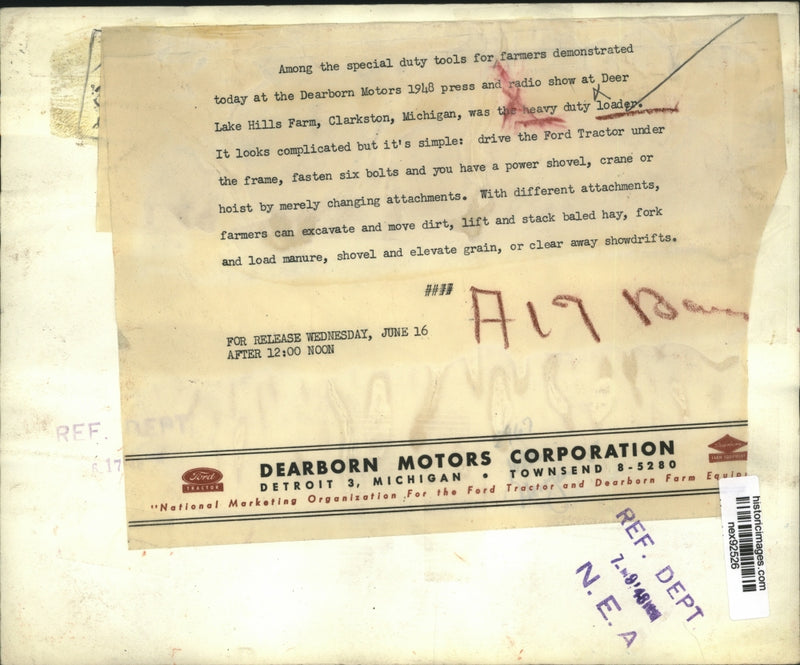 Among the special duty tools for farmers demonstrated
today at the Dearborn Motors 1948 press and radio show at Deer
Lake Hills Farm, Clarkston, Michigan, was the heavy duty loader.
It looks complicated but it's simple: drive the Ford Tractor under
the frame, fasten six bolts and you have a power shovel, crane or
hoist by merely changing attachments. With different attachments,
farmers can excavate and move dirt, lift and stack baled hay, fork
and load manure, shovel and elevate grain, or clear away showdrifts.
####
A17
FOR RELEASE WEDNESDAY, JUNE 16
AFTER 12:00 NOON
REF. DEPT
Ford
TRACTOR
DEARBORN MOTORS CORPORATION
DETROIT 3, MICHIGAN • TOWNSEND 8-5280
"National Marketing Organization For the Ford Tractor and Dearborn Farm Equip
historicimages.com
nex92526
REF. DEPT
N. E. A